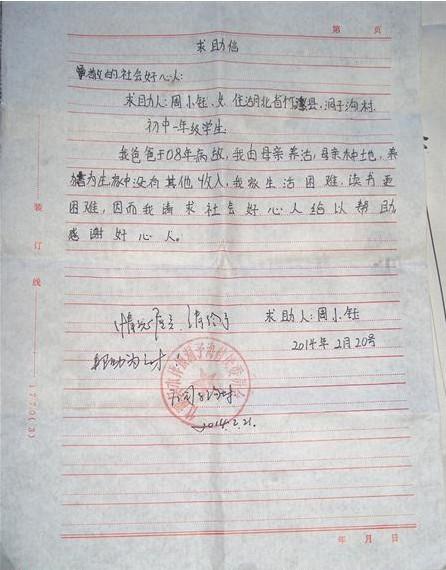 第 页
求助信
尊敬的社会好心人:
求助人: 周小钰、女、住湖北省 县、涧子沟村.
初中一年级学生.
我爸爸于08年病故, 我由母亲养活, 母亲种土地, 养
为生, 家中没有其他收入, 我家生活困难, 读书更
困难, 因而我请求社会好心人给以帮助.
感谢好心人。
情况属实,请给予
求助人: 周小钰
2014年2月20号
为
2014.2.21.
装订线
1770(3)
年 月 日